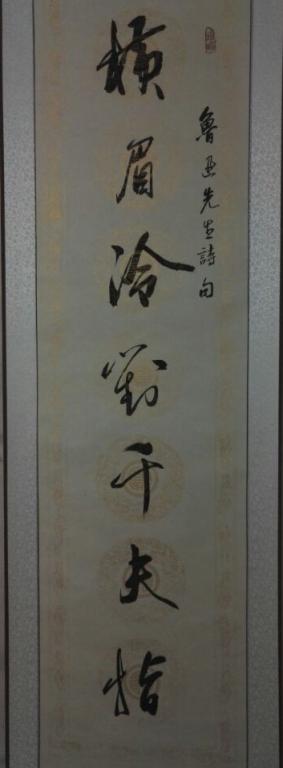 魯迅先生詩句
橫眉冷對千夫指